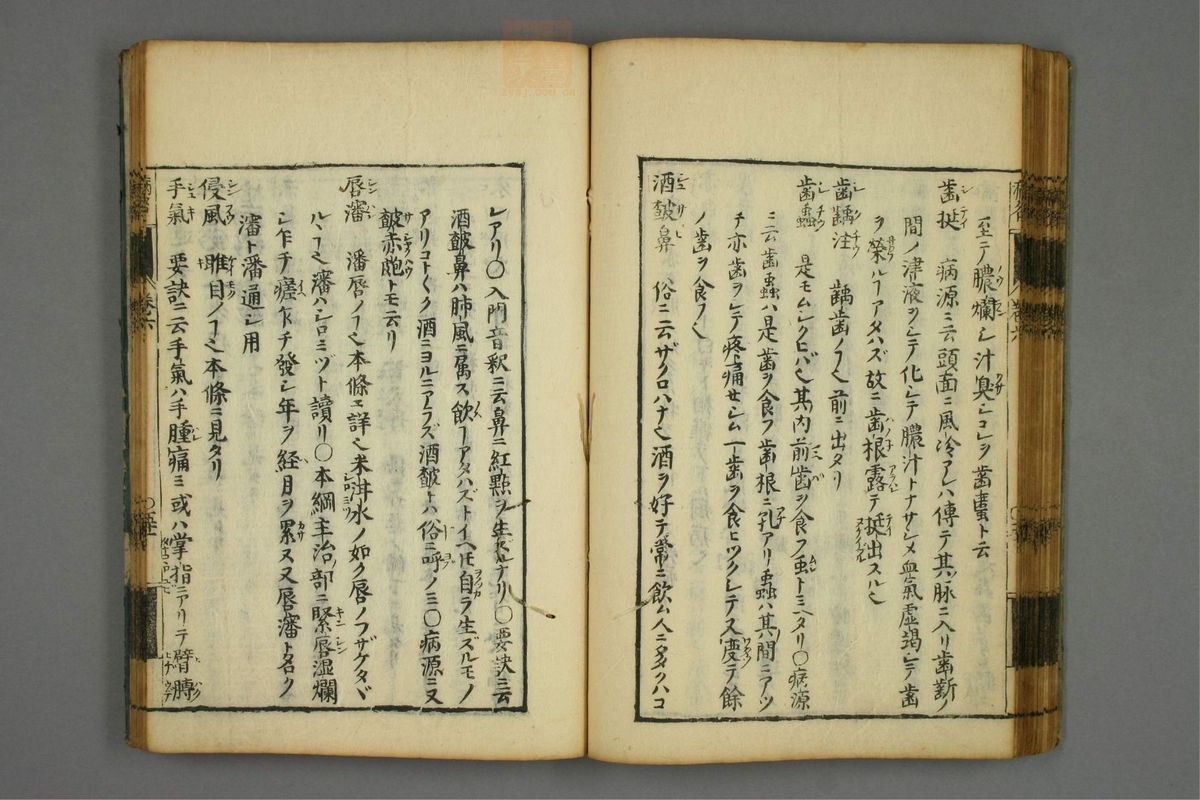 至テ膿爛シ汁臭シコレヲ歯䘌ト云
歯挺 病源ニ云頭面ニ風冷アレハ傳テ其脉ニ入リ歯齗ノ
間ノ津液ヲシテ化シテ膿汁トナサシメ血氣虚竭シテ歯
ヲ榮ルヿアタハズ故ニ歯根露テ挺出スル也
歯齲注 齲歯ノヿ也前ニ出タリ
歯蟲 是モムシクヒバ也其内前歯ヲ食フ虫ト ミヘタリ〇病源
ニ云歯蟲ハ是歯ヲ食フ歯根ニ孔アリ蟲ハ其間ニアツ
チ亦歯ヲシテ疼痛セシム一歯ヲ食ヒツクシテ又度テ餘
ノ歯ヲ食フ也
酒皶鼻 俗ニ云ザクロハナ也酒ヲ好テ常ニ飲ム人ニ多クハコ
レアリ〇入門音釈ニ云鼻ニ紅點ヲ生ズルナリ〇要訣ニ云
酒皶鼻ハ肺風ニ属ス飲ヿアタハズトイヘ𪜈自ラ生ズルモノ
アリコト〱ク酒ニヨルニアラズ酒皶トハ俗ニ呼ノミ〇病源ニ又
皶赤皰トモ云リ
唇瀋 瀋唇ノヿ也本條エ詳也米泔水ノ如ク唇ノフザケタヾ
ルヽヿ也瀋ハシロミヅト讀リ〇本綱主治ノ部ニ緊唇湿爛
シ乍チ瘥乍チ發シ年ヲ経月ヲ累ス又唇瀋ト名ク
瀋ト潘通シ用
侵風 雎目ノヿ也本條ニ見タリ
手氣 要訣ニ云手氣ハ手腫痛ミ或ハ掌指ニアリテ臂膊